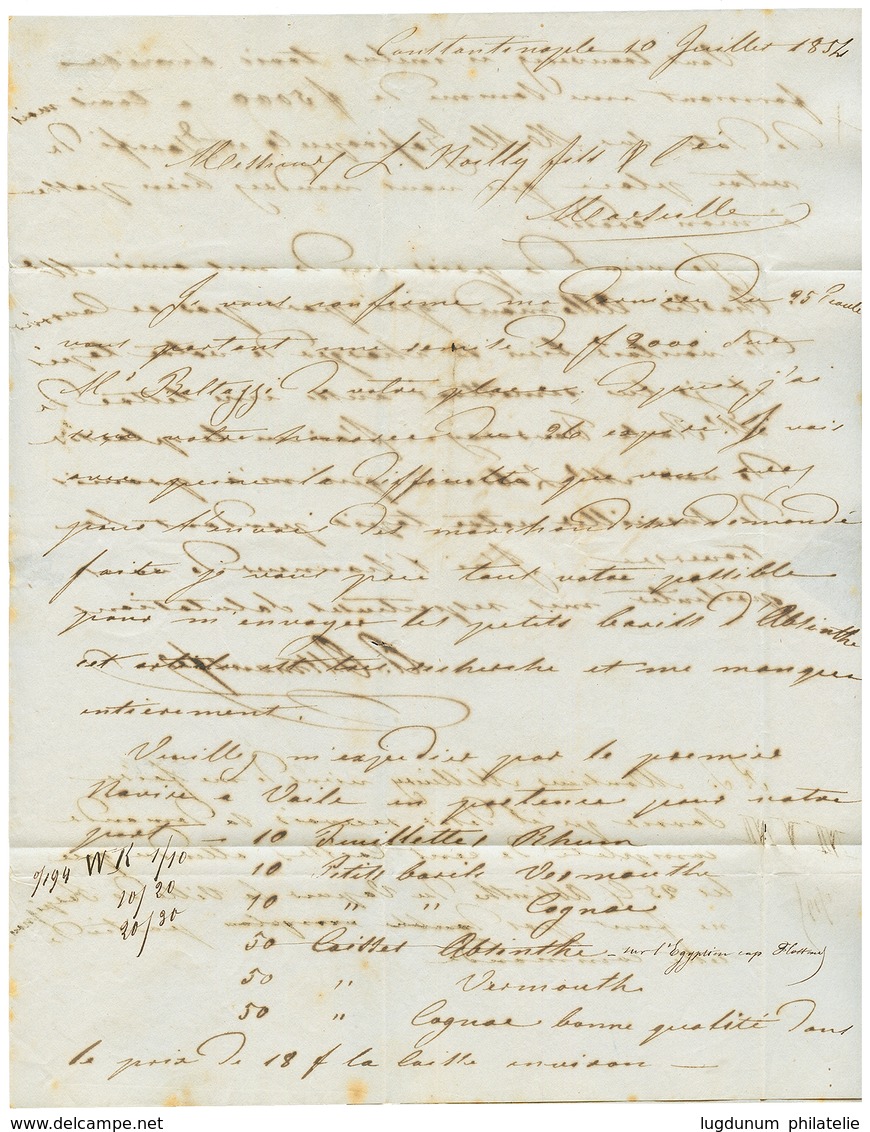 Constantinople 10 Juillet 1854
Messieurs L. Noilly fils & Cie
Marseille
Je vous confirme ma dernière du 25 Ecoulé
vous portant une remise de f 2000 sur
Mr Baltazzi de votre place. Depuis j'ai
reçu votre honorée du 26 expiré. Je vois
avec peine la difficulté que vous avez
pour l'envoi des marchandises demandé
faites je vous prie tout votre possible
pour m'envoyer les petits barils d'Absinthe
cet article est très recherché et me manque
entièrement.
Veuillez m'expedier par le premier
Navire a Voile en partence pour notre
port — 10 Feuillettes Rhum
o/194 WK 1/10 10 Petits barils Vermouthe
10/20 10 " " Cognac
20/30
50 Caisses Absinthe - sur l'Egyptien cap
50 " Vermouth
50 " Cognac bonne qualité dans
le prix de 18 f la Caisse environ —
www.delcampe.net
lugdunum philatelie